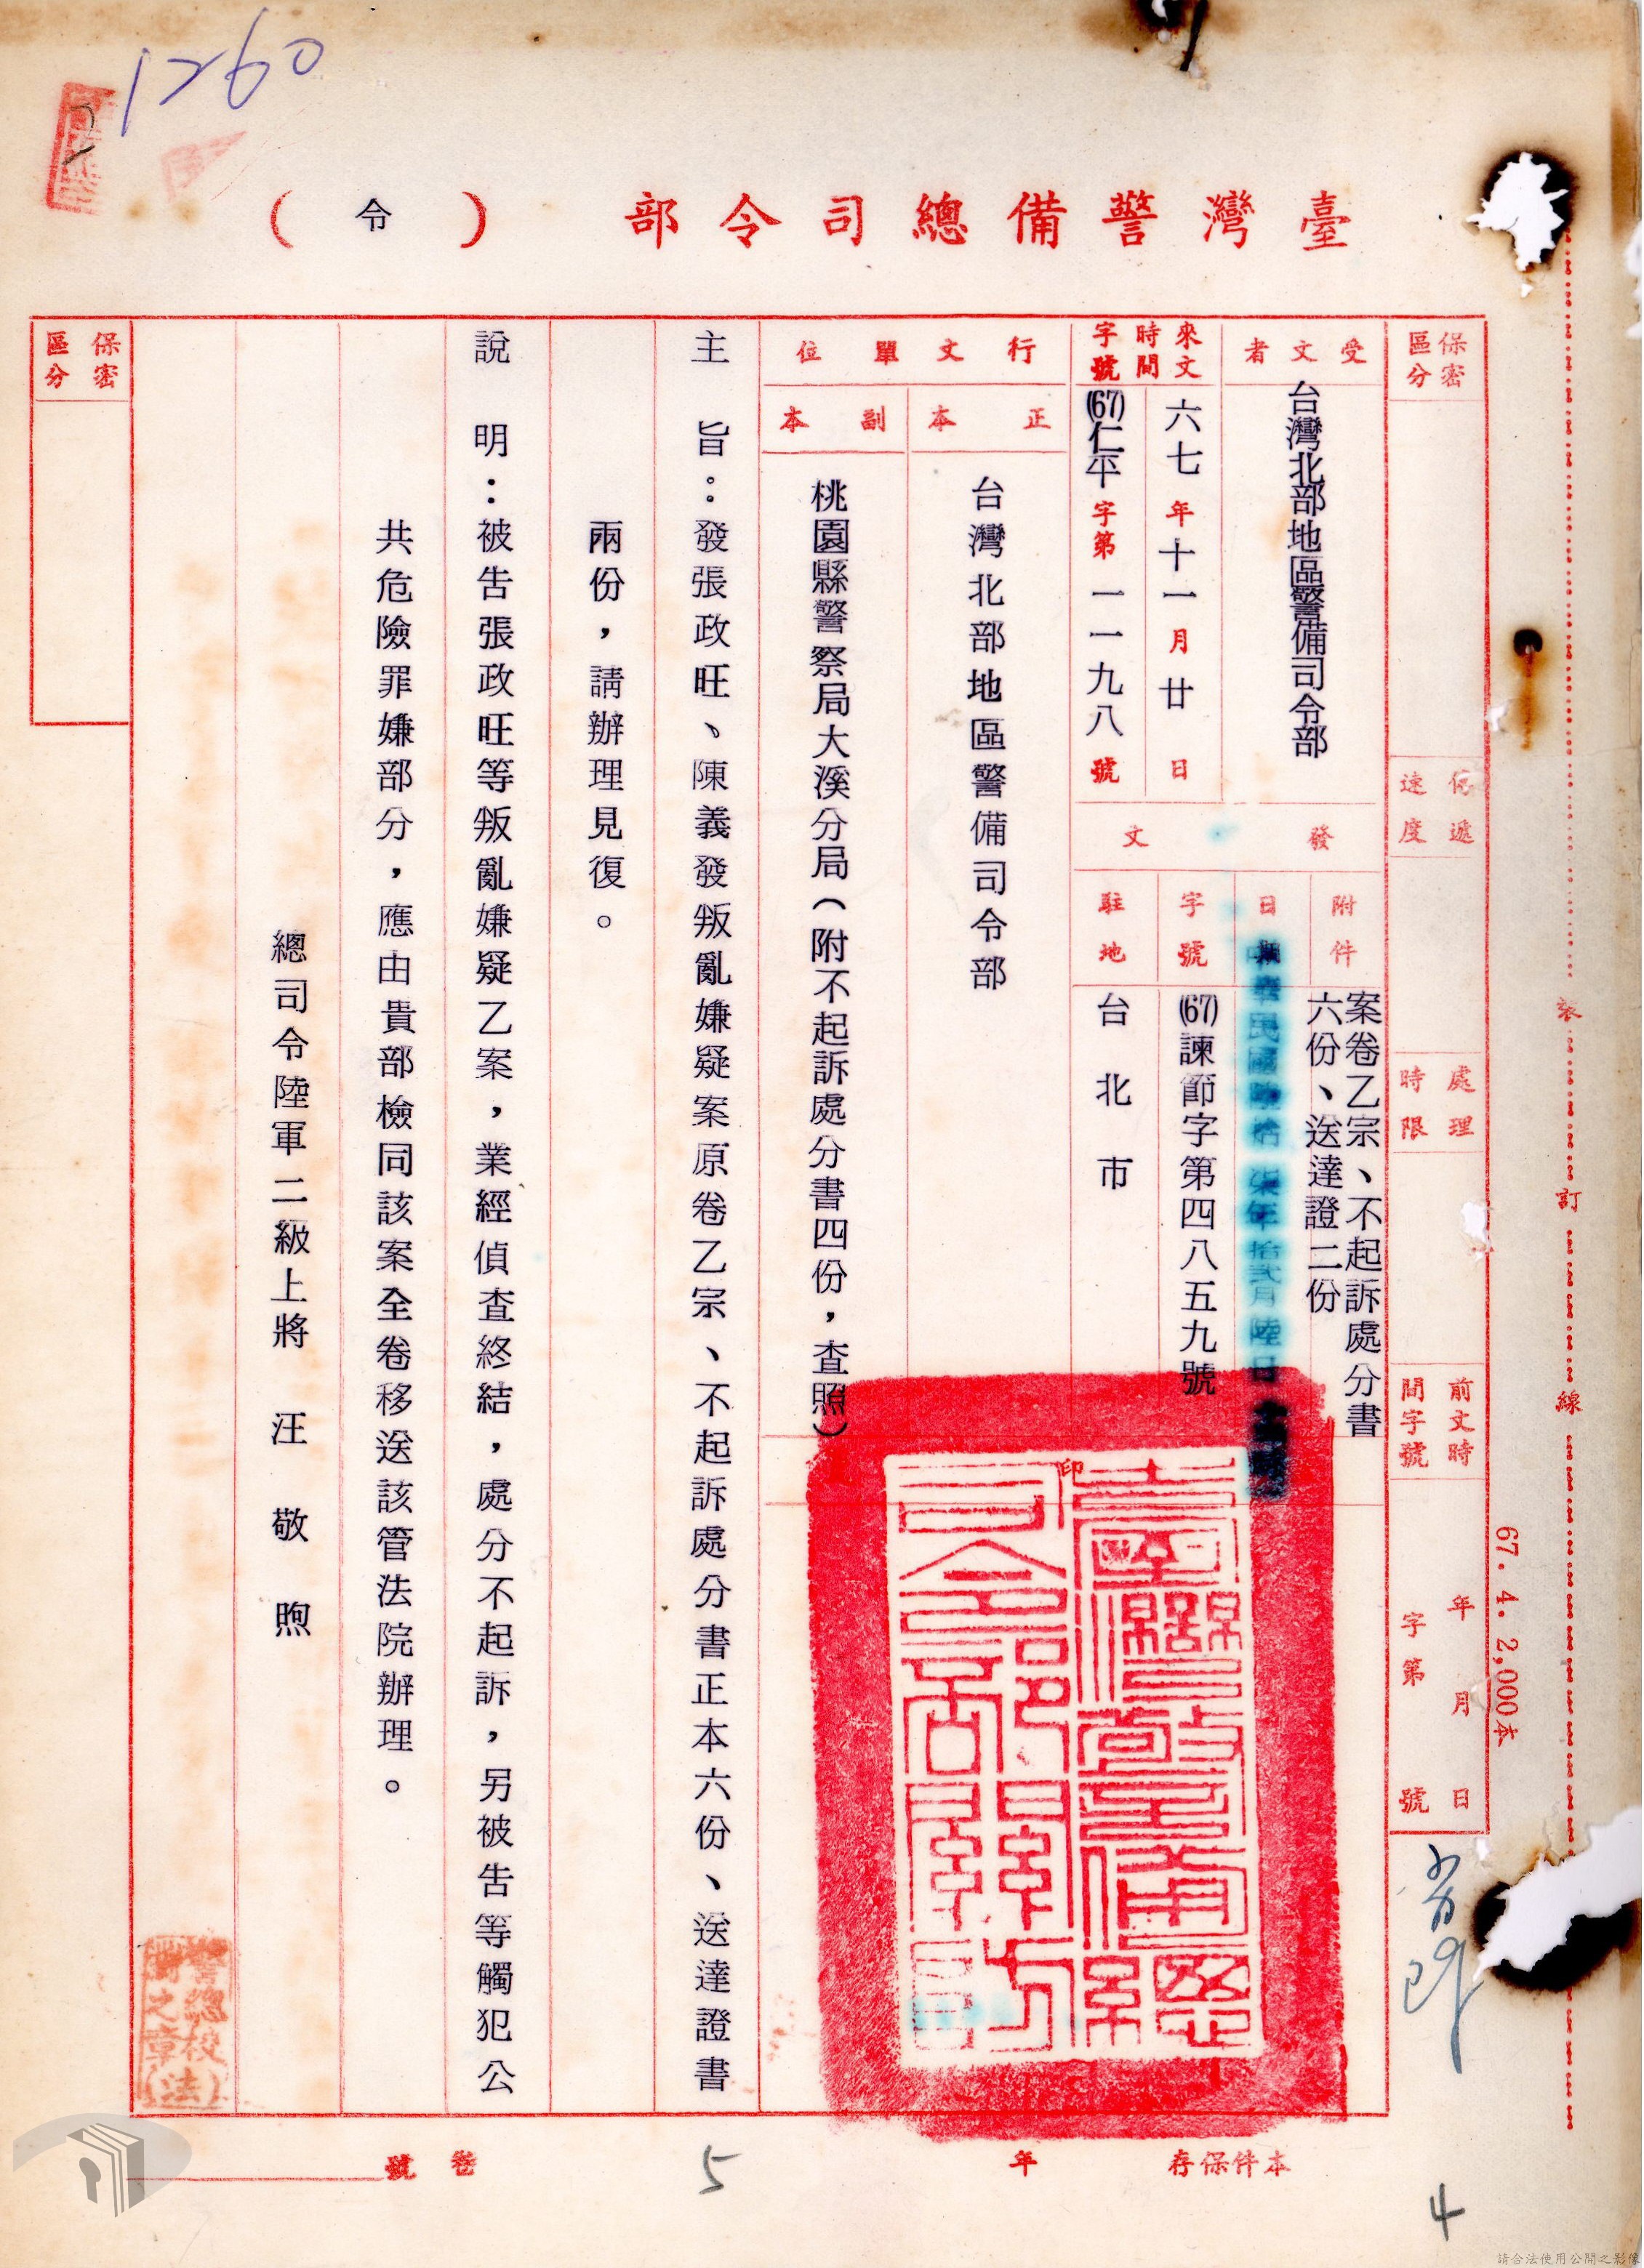 1260
臺灣警備總司令部（令）
保密區分
傳遞速度
處理時限
前文時間字號
年月日
字第號
受文者
台灣北部地區警備司令部
來文時間字號
六七年十一月廿日
(67)仁平字第一一九八號
發文
附件
案卷乙宗、不起訴處分書
六份、送達證二份
日期
中華民國陸拾柒年拾貳月陸日
字號
(67)諫節字第四八五九號
駐地
台北市
行文單位
正本
台灣北部地區警備司令部
副本
桃園縣警察局大溪分局（附不起訴處分書四份，查照）
印
臺灣警備總司令部關防
主旨：發張政旺、陳義發叛亂嫌疑案原卷乙宗、不起訴處分書正本六份、送達證書
兩份，請辦理見復。
說明：被告張政旺等叛亂嫌疑乙案，業經偵查終結，處分不起訴，另被告等觸犯公
共危險罪嫌部分，應由貴部檢同該案全卷移送該管法院辦理。
總司令陸軍二級上將 汪敬煦
保密區分
裝訂線
67.4.2,000本
本件保存年
卷號
5
4
請合法使用公開之影像